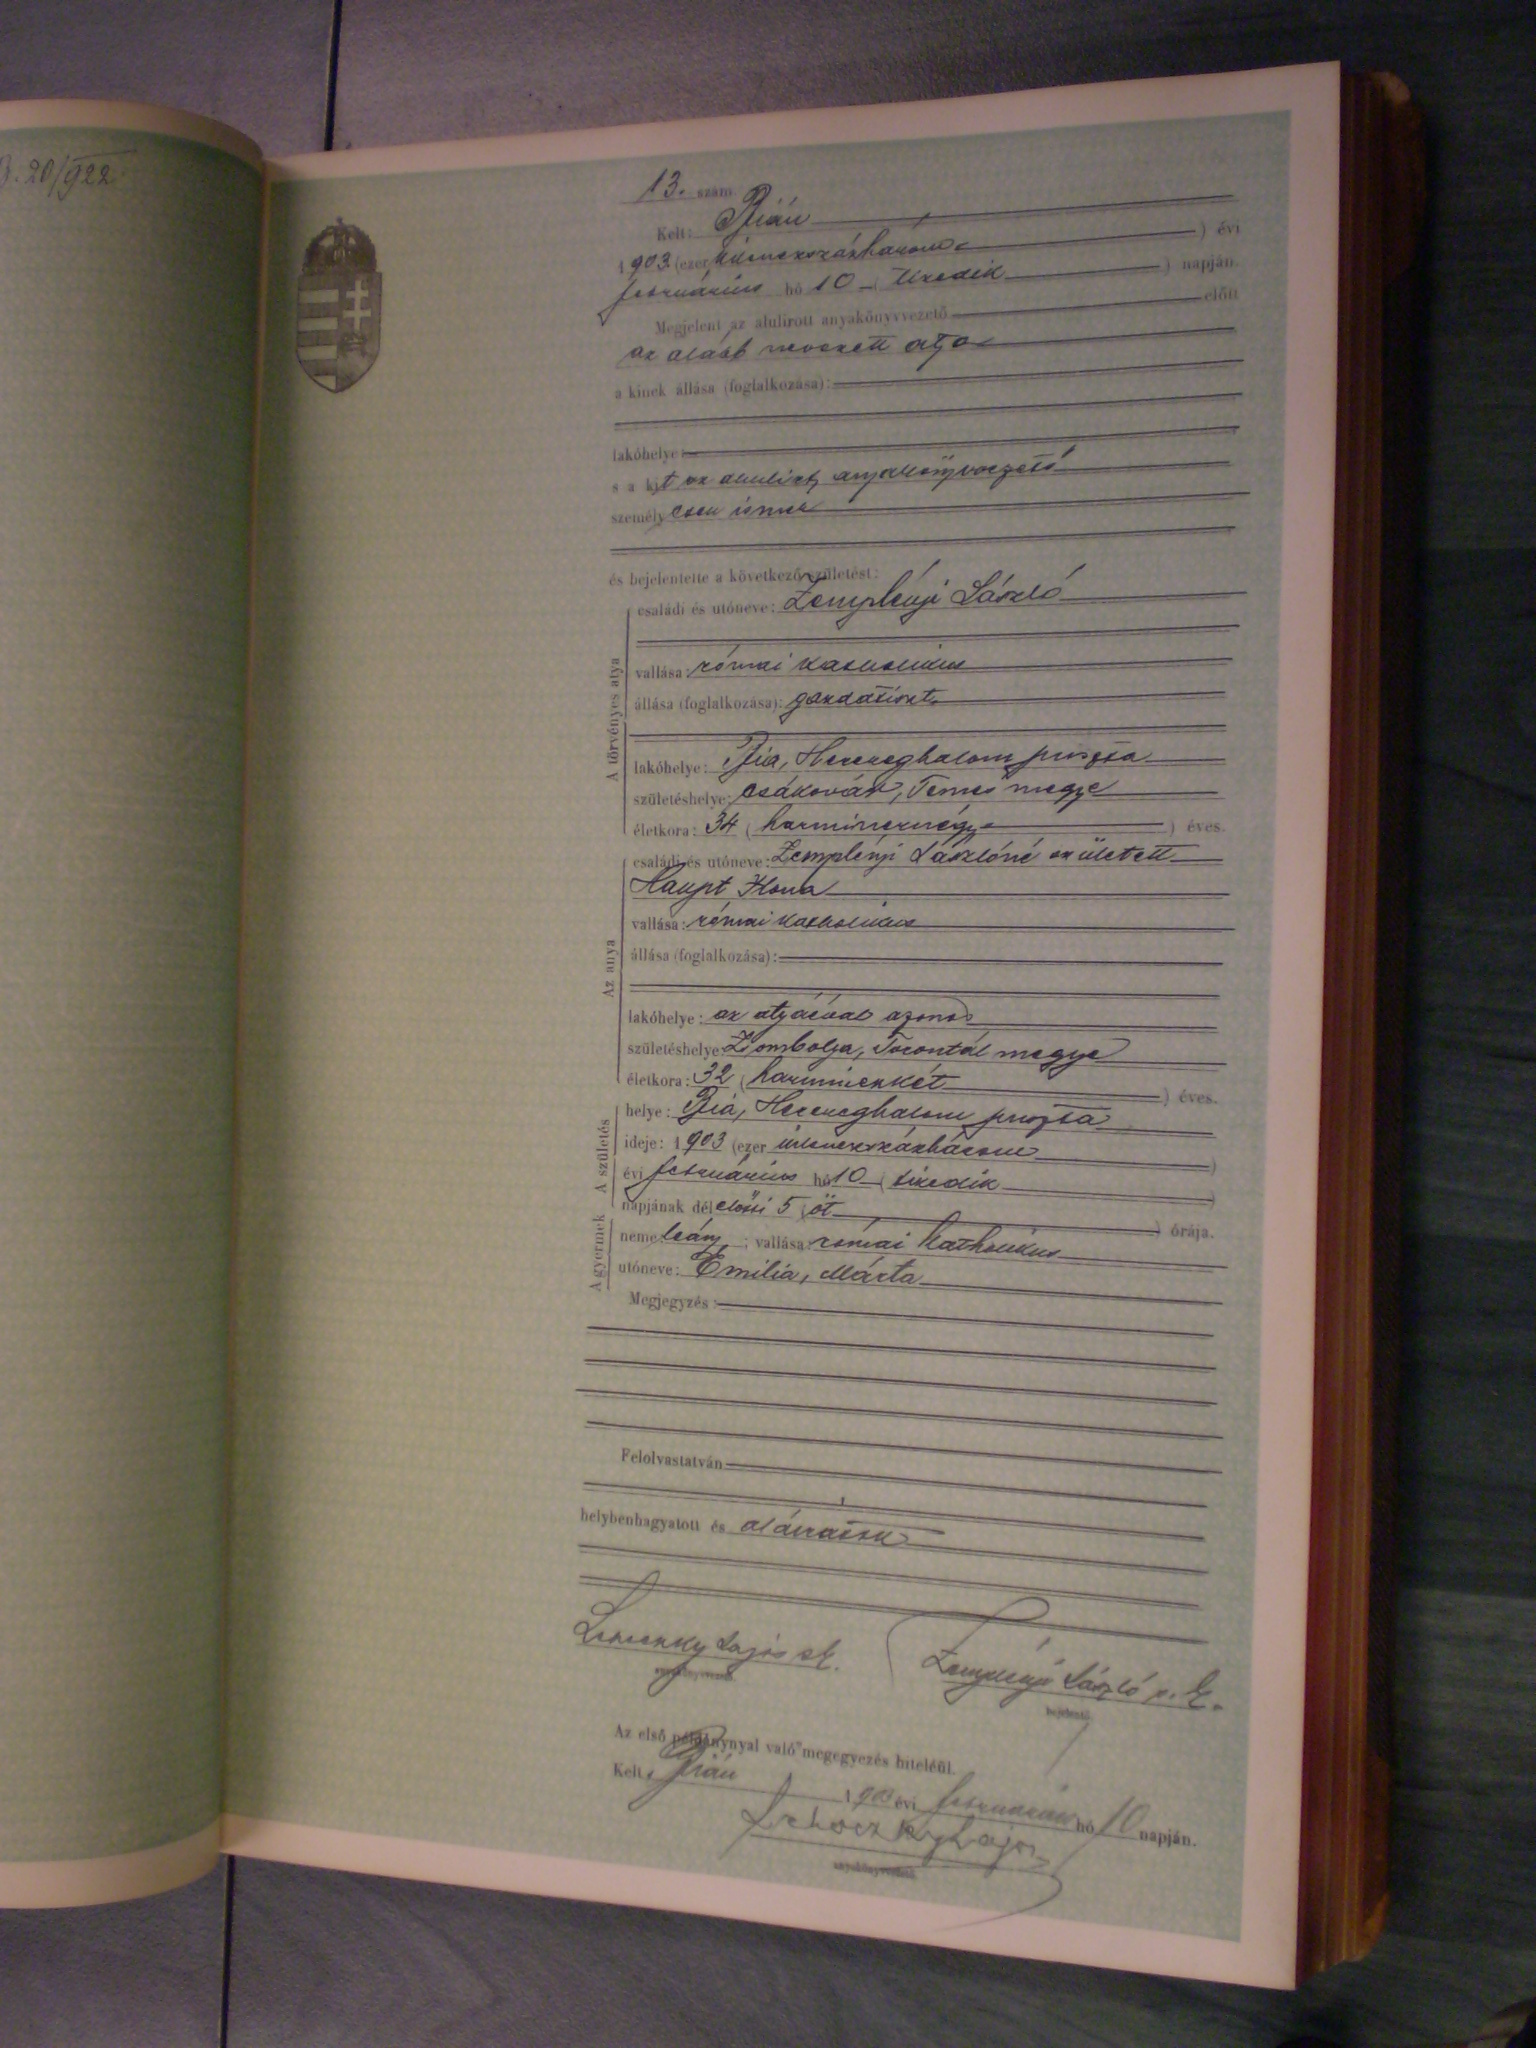 B. 20/922
13. szám
Kelt: Bián
1903 (ezer kilencszázhárom) évi
februárius hó 10 (tizedik) napján.
Megjelent az alulirott anyakönyvvezető előtt
az alább nevezett atya
a kinek állása (foglalkozása):
lakóhelye:
s a kit az alulirt anyakönyvvezető
személyesen ismer
és bejelentette a következő születést:
A törvényes atya
családi és utóneve: Zemplényi László
vallása: római katholikus
állása (foglalkozása): gazdatiszt
lakóhelye: Bia, Herczeghalom puszta
születéshelye: Csákovár, Temes megye
életkora: 34 (harmincznégy) éves.
Az anya
családi és utóneve: Zemplényi Lászlóné született
Haupt Ilona
vallása: római katholikus
állása (foglalkozása):
lakóhelye: az atyáéval azonos
születéshelye: Zsombolya, Torontál megye
életkora: 32 (harminczkét) éves.
A születés
helye: Bia, Herczeghalom puszta
ideje: 1903 (ezer kilenczszázhárom)
évi februárius hó 10 (tizedik)
napjának délelőtti 5 (öt) órája.
A gyermek
neme: leány; vallása: római katholikus
utóneve: Emilia, Márta
Megjegyzés:
Felolvastatván
helybenhagyatott és aláiratott
Lajos sk. Zemplényi László s. k.
anyakönyvvezető bejelentő
Az első példánynyal való megegyezés hiteléül.
Kelt, Bián 1903 évi februárius hó 10 napján.
Lajos
anyakönyvvezető